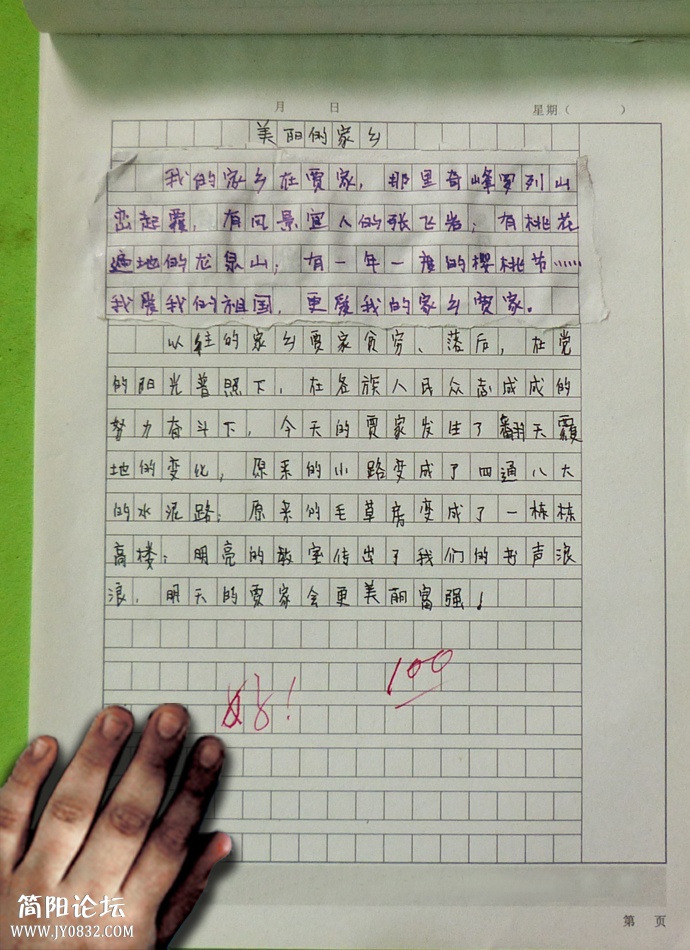 月 日
星期（ ）
美丽的家乡
我的家乡在贾家，那里奇峰罗列山
峦起覆，有风景宜人的张飞岩；有桃花
遍地的龙泉山；有一年一度的樱桃节……
我爱我的祖国，更爱我的家乡贾家。
以往的家乡贾家贫穷、落后，在党
的阳光普照下，在各族人民众志成成的
努力奋斗下，今天的贾家发生了翻天覆
地的变化，原来的小路变成了四通八大
的水泥路；原来的毛草房变成了一栋栋
高楼；明亮的教室传出了我们的书声浪
浪，明天的贾家会更美丽富强！
好！ 100
简阳论坛
www.JY0832.com
第 页